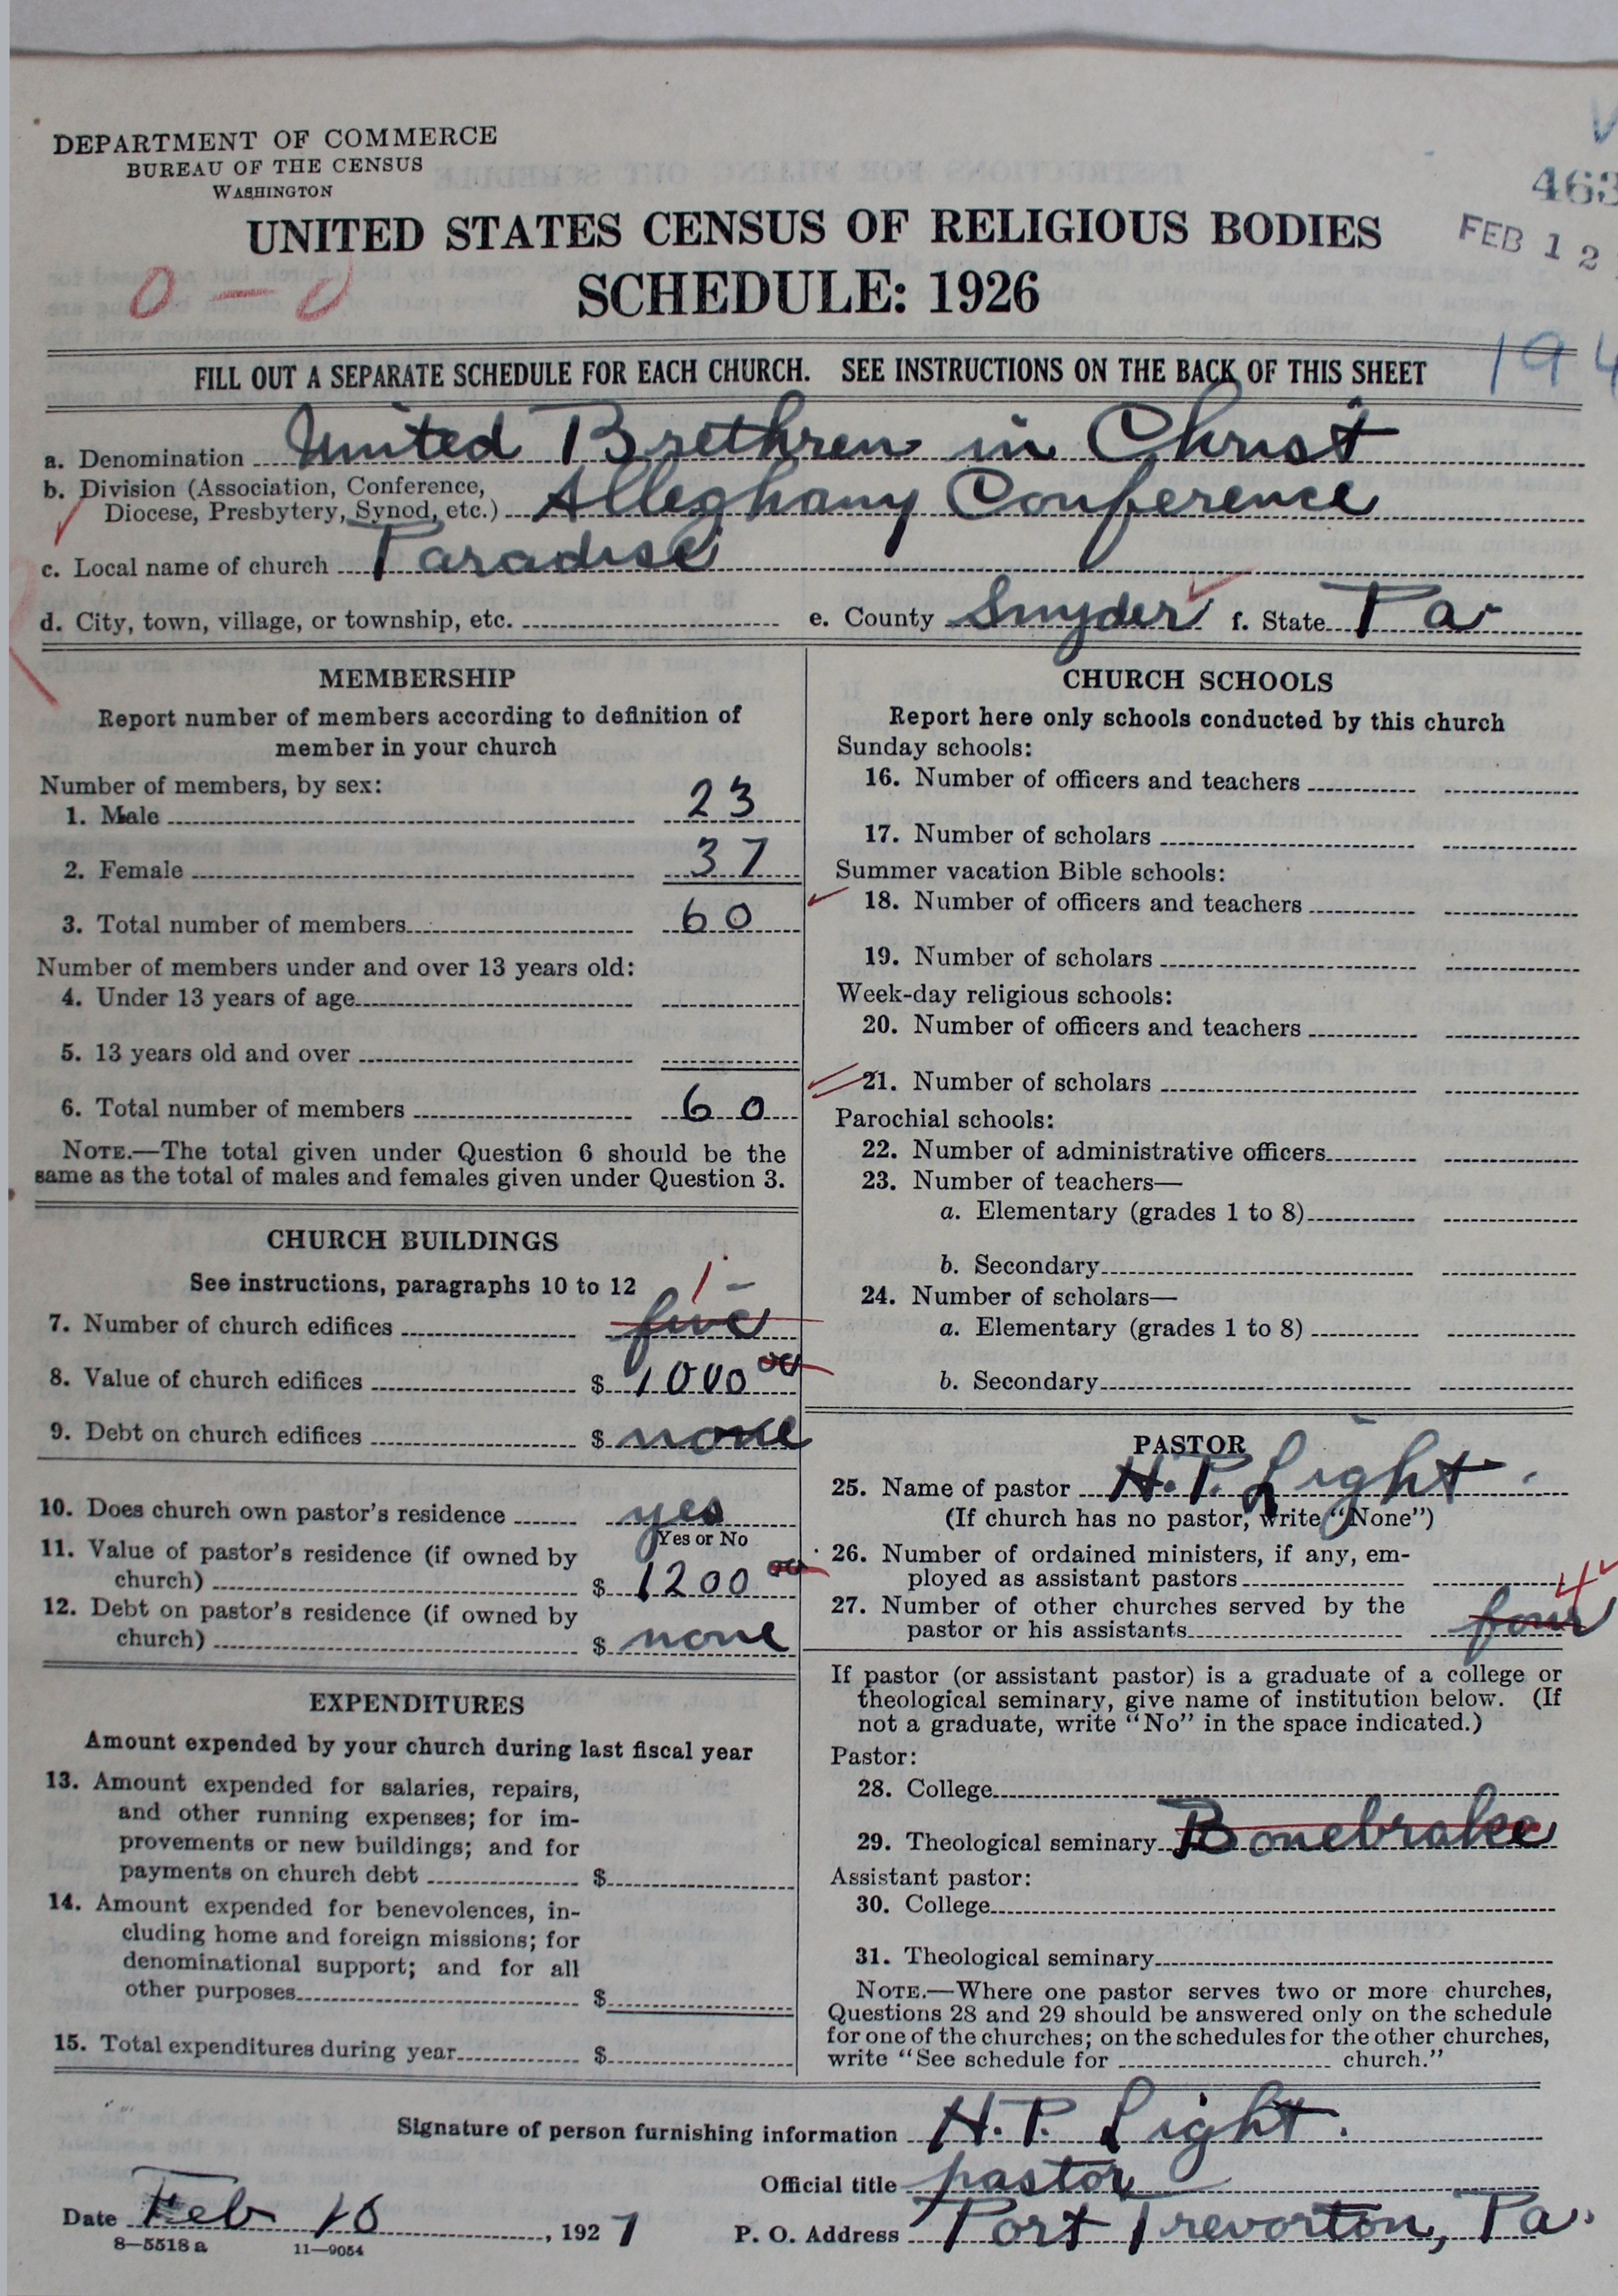 DEPARTMENT OF COMMERCE
BUREAU OF THE CENSUS
WASHINGTON
463
UNITED STATES CENSUS OF RELIGIOUS BODIES
FEB 12
0-0
SCHEDULE: 1926
FILL OUT A SEPARATE SCHEDULE FOR EACH CHURCH. SEE INSTRUCTIONS ON THE BACK OF THIS SHEET
194
a. Denomination United Brethren in Christ
b. Division (Association, Conference,
Diocese, Presbytery, Synod, etc.) Alleghany Conference
c. Local name of church Paradise
d. City, town, village, or township, etc. e. County Snyder f. State Pa
MEMBERSHIP
Report number of members according to definition of
member in your church
Number of members, by sex:
1. Male 23
2. Female 37
3. Total number of members 60
Number of members under and over 13 years old:
4. Under 13 years of age
5. 13 years old and over
6. Total number of members 60
NOTE.—The total given under Question 6 should be the
same as the total of males and females given under Question 3.
CHURCH BUILDINGS
See instructions, paragraphs 10 to 12
1-
7. Number of church edifices five
8. Value of church edifices $ 1000 00
9. Debt on church edifices $ none
10. Does church own pastor's residence yes
Yes or No
11. Value of pastor's residence (if owned by
church) $ 1200 00
12. Debt on pastor's residence (if owned by
church) $ none
EXPENDITURES
Amount expended by your church during last fiscal year
13. Amount expended for salaries, repairs,
and other running expenses; for im-
provements or new buildings; and for
payments on church debt $
14. Amount expended for benevolences, in-
cluding home and foreign missions; for
denominational support; and for all
other purposes $
15. Total expenditures during year $
CHURCH SCHOOLS
Report here only schools conducted by this church
Sunday schools:
16. Number of officers and teachers
17. Number of scholars
Summer vacation Bible schools:
18. Number of officers and teachers
19. Number of scholars
Week-day religious schools:
20. Number of officers and teachers
21. Number of scholars
Parochial schools:
22. Number of administrative officers
23. Number of teachers—
a. Elementary (grades 1 to 8)
b. Secondary
24. Number of scholars—
a. Elementary (grades 1 to 8)
b. Secondary
PASTOR
25. Name of pastor H. P. Light
(If church has no pastor, write "None")
26. Number of ordained ministers, if any, em-
ployed as assistant pastors
4
27. Number of other churches served by the
pastor or his assistants four
If pastor (or assistant pastor) is a graduate of a college or
theological seminary, give name of institution below. (If
not a graduate, write "No" in the space indicated.)
Pastor:
28. College
29. Theological seminary Bonebrake
Assistant pastor:
30. College
31. Theological seminary
NOTE.—Where one pastor serves two or more churches,
Questions 28 and 29 should be answered only on the schedule
for one of the churches; on the schedules for the other churches,
write "See schedule for church."
Signature of person furnishing information H. P. Light.
Official title pastor
Date Feb 10, 1927
P. O. Address Port Trevorton, Pa.
8—5518 a 11—9054